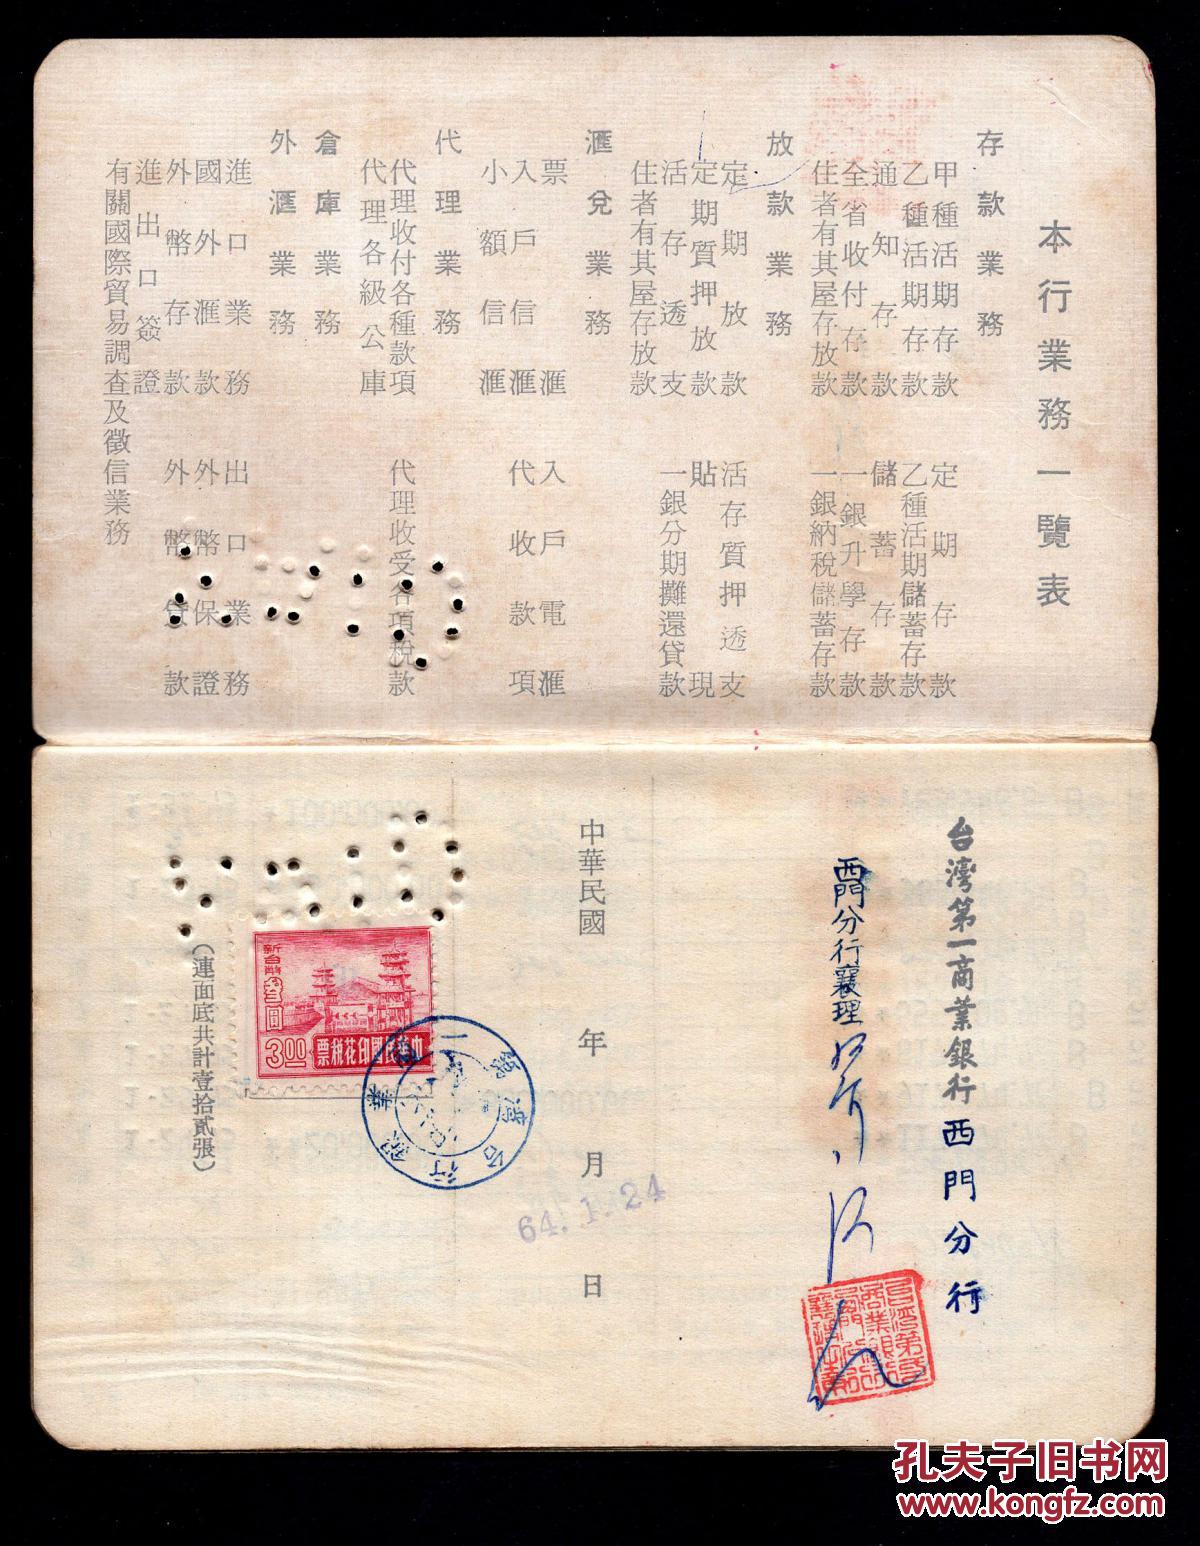 本行業務一覽表
存款業務
甲種活期存款 定期存款
乙種活期存款 乙種活期儲蓄存款
通知存款 儲蓄存款
全省收付存款 一銀升學存款
住者有其屋存放款 一銀納稅儲蓄存款
放款業務
定期放款 活存質押透支
定期質押放款 貼現
活存透支 一銀分期攤還貸款
住者有其屋存放款
滙兌業務
票滙 入戶電滙
入戶信滙 代收款項
小額信滙
代理業務
代理收付各種款項 代理收受各項稅款
代理各級公庫
倉庫業務
外滙業務
進口業務 出口業務
國外滙款 外幣保證
外幣存款 外幣貸款
進出口簽證
有關國際貿易調查及徵信業務
台灣第一商業銀行西門分行
西門分行襄理
中華民國 年 月 日
64.1.24
新台幣叁圓
3.00
中華民國印花稅票
台灣第一商業銀行
(連面底共計壹拾貳張)
孔夫子旧书网
www.kongfz.com